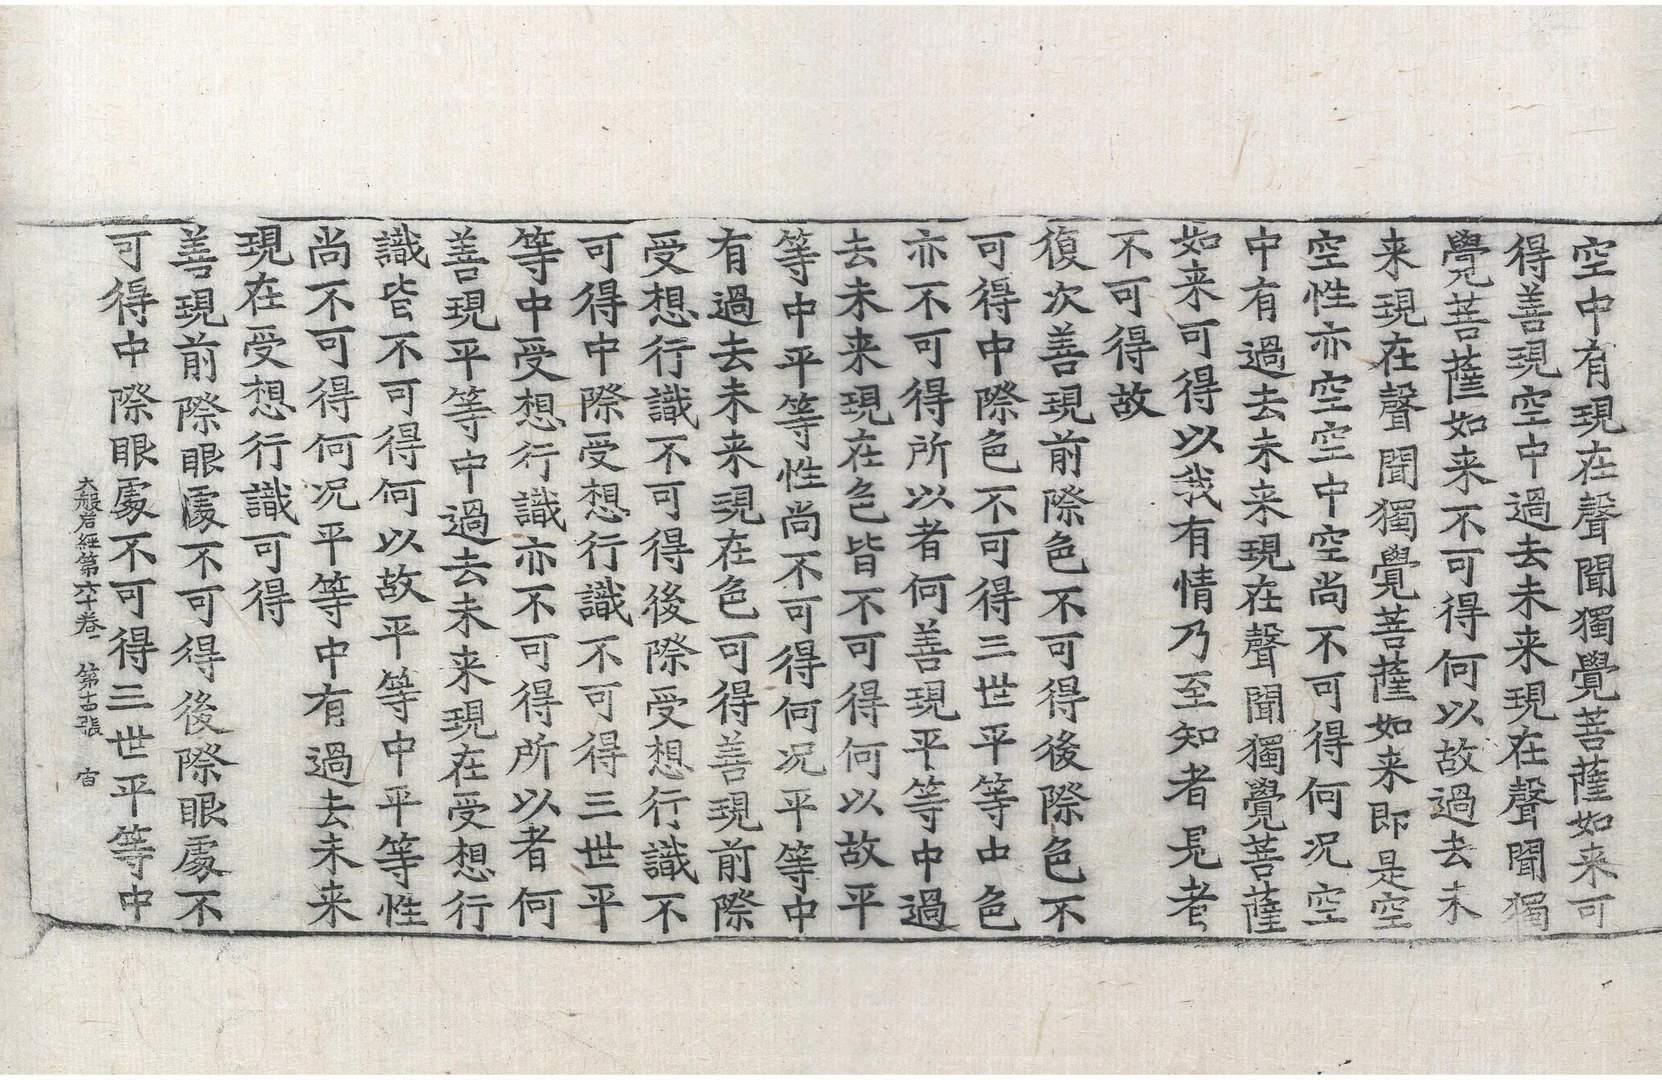 空中有現在聲聞獨覺菩薩如来可
得善現空中過去未来現在聲聞獨
覺菩薩如来不可得何以故過去未
来現在聲聞獨覺菩薩如来即是空
空性亦空空中空尚不可得何况空
中有過去未来現在聲聞獨覺菩薩
如来可得以我有情乃至知者見者
不可得故
復次善現前際色不可得後際色不
可得中際色不可得三世平等中色
亦不可得所以者何善現平等中過
去未来現在色皆不可得何以故平
等中平等性尚不可得何况平等中
有過去未来現在色可得善現前際
受想行識不可得後際受想行識不
可得中際受想行識不可得三世平
等中受想行識亦不可得所以者何
善現平等中過去未来現在受想行
識皆不可得何以故平等中平等性
尚不可得何况平等中有過去未来
現在受想行識可得
善現前際眼處不可得後際眼處不
可得中際眼處不可得三世平等中
大般若經第六十卷 第十古張 宿